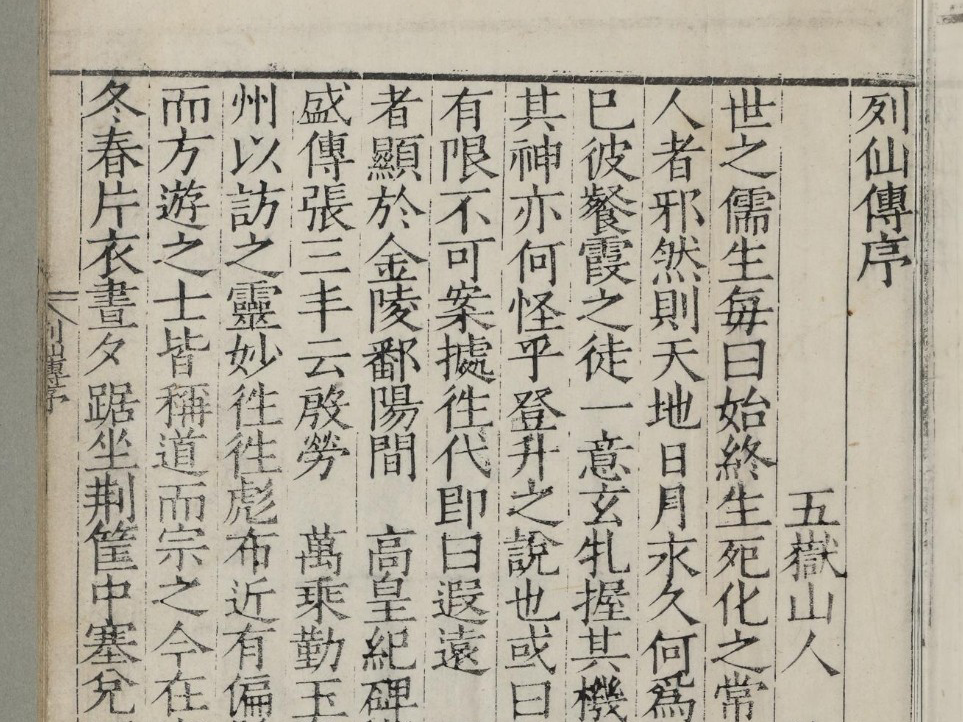 列仙傳序
五嶽山人
世之儒生每曰始終生死化之常
人者邪然則天地日月永久何為
已彼餐霞之徒一意玄牝握其機
其神亦何怪乎登升之說也或曰
有限不可案據徃代即曰遐遠
者顯於金陵鄱陽間　高皇紀碑
盛傳張三丰云殷勞　萬乘勤玉
州以訪之靈妙徃徃彪布近有偏
而方遊之士皆稱道而宗之今在
冬春片衣晝夕踞坐荆筐中塞兊
列仙傳序